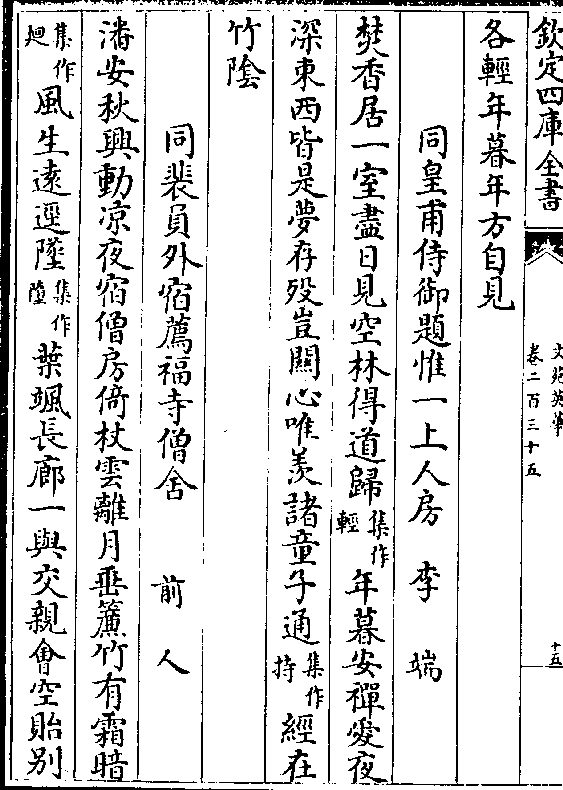 欽定四庫全書
文苑英華
卷二百三十五
十五
各輕年暮年方自見
同皇甫侍御題惟一上人房 李端
焚香居一室盡日見空林得道歸集作輕年暮安禪愛夜
深東西皆是夢存歿豈關心唯羨諸童子通集作持經在
竹陰
同裴員外宿薦福寺僧舍 前人
潘安秋興動凉夜宿僧房倚杖雲離月垂簾竹有霜暗
集作廻風生遠逕墜集作隕葉颯長廊一與交親會空貽别